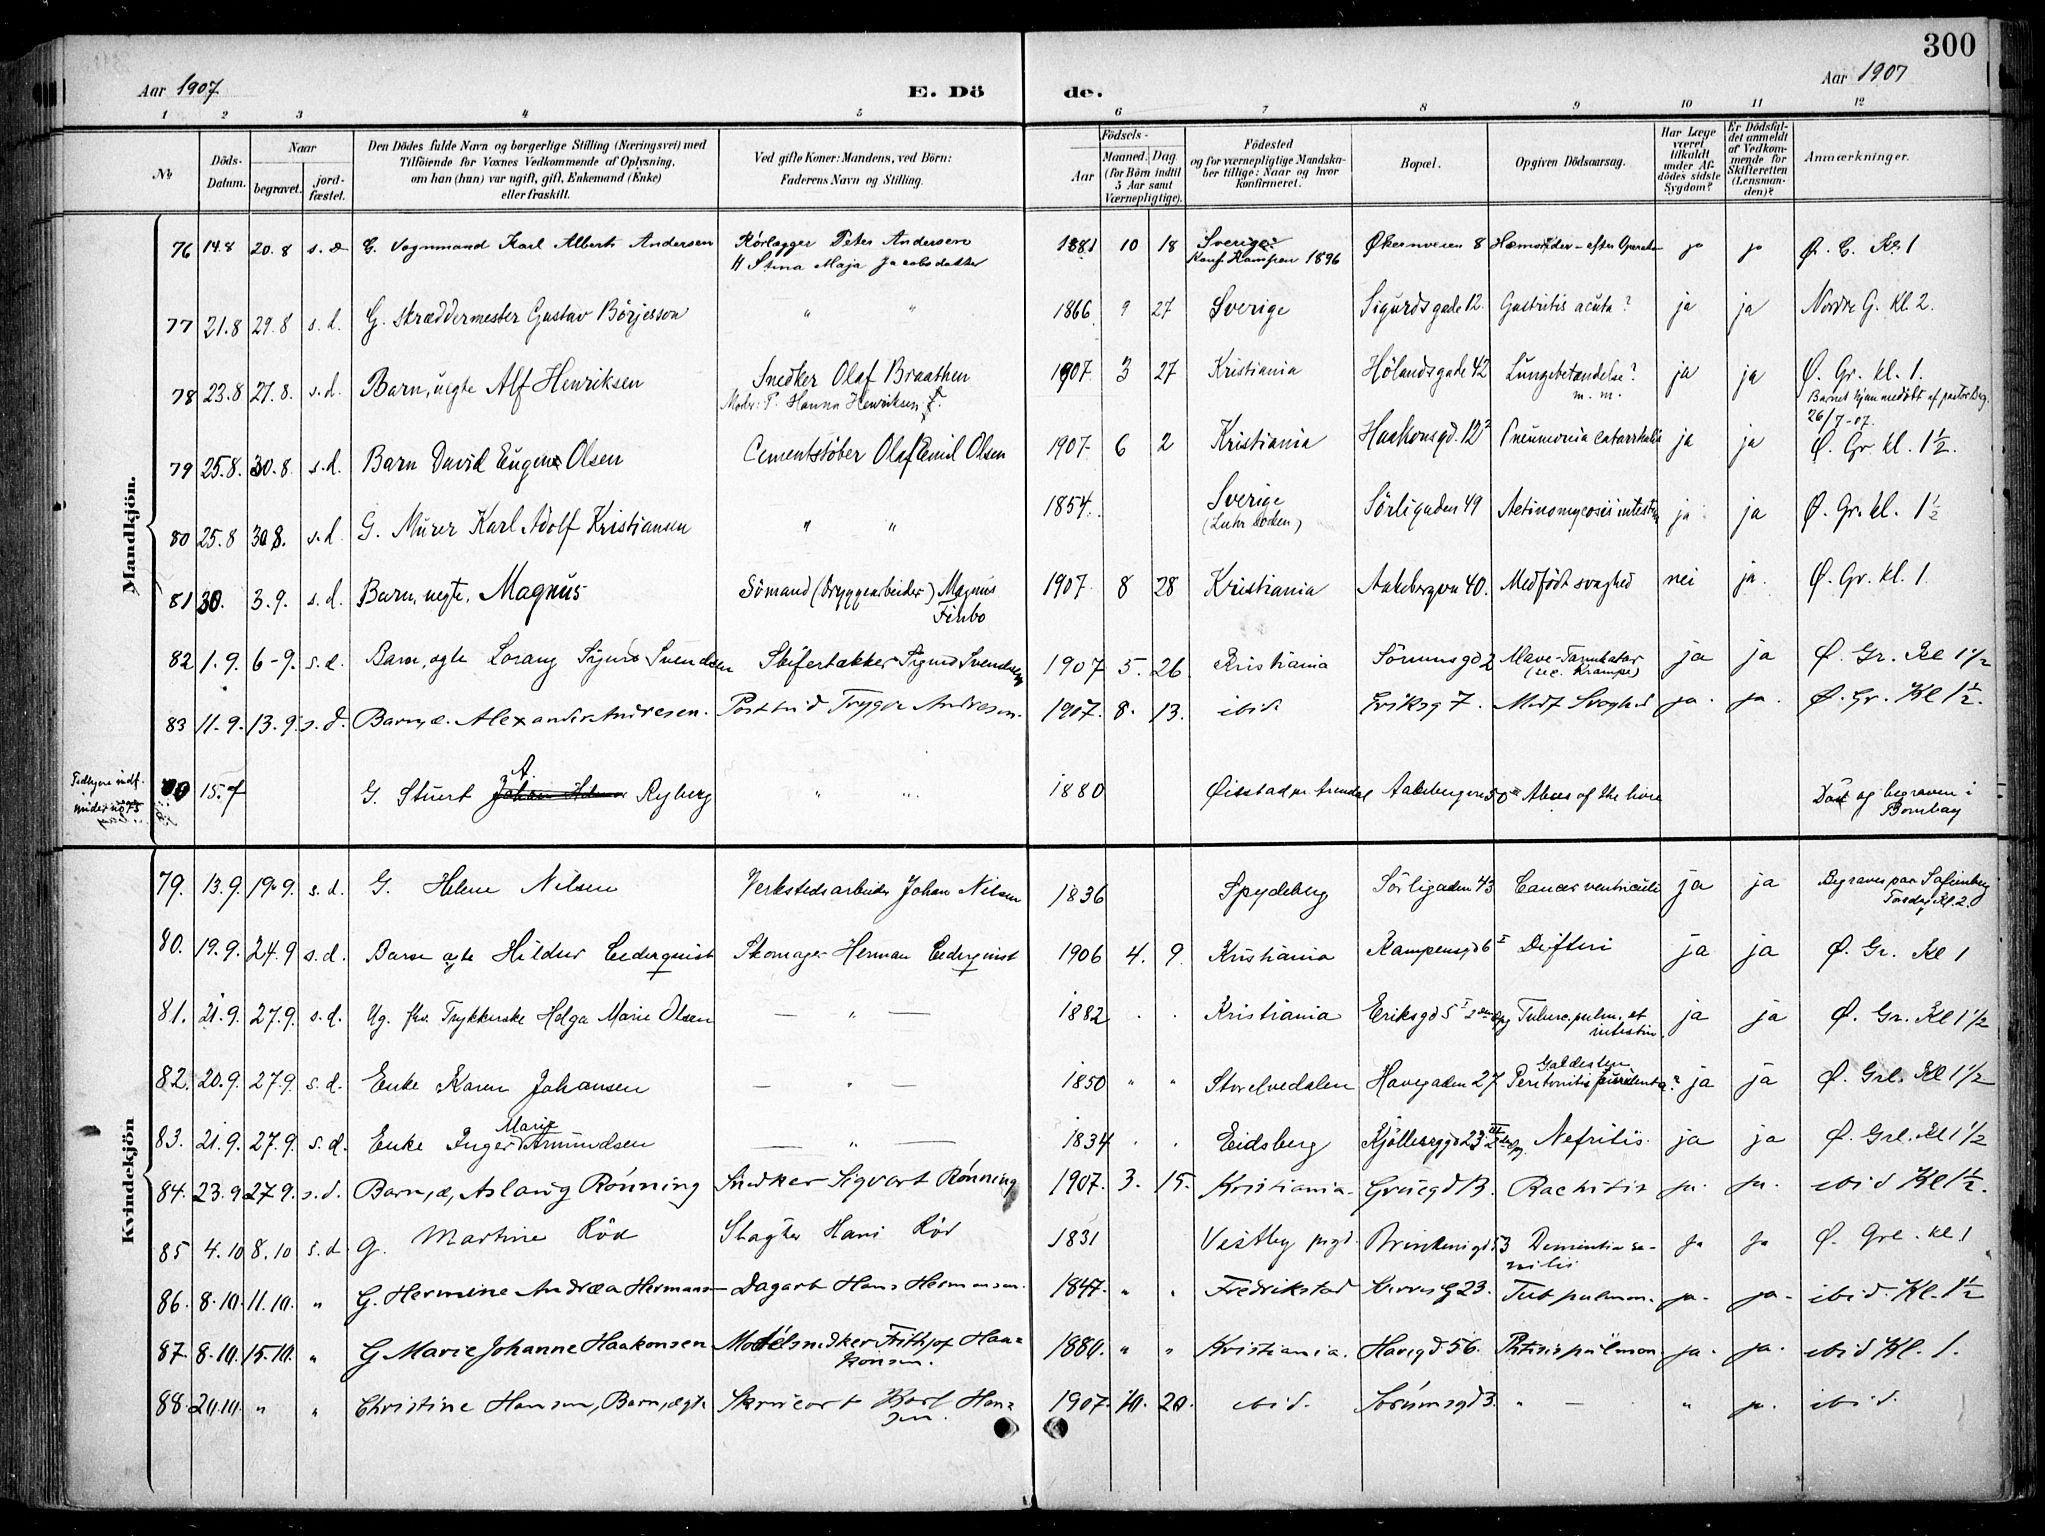 300
Aar 1907. E. Dö de. Aar 1907
1 2 3 4 5 6 7 8 9 10 11 12
No
Döds-Datum.
Naar
begravet.
jordfæstet.
Den Dödes fulde Navn og borgerlige Stilling (Næringsvei) med
Tilföiende for Voxnes Vedkommende af Oplysning,
om han (hun) var ugift, gift, Enkemand (Enke)
eller fraskilt.
Ved gifte Koner: Mandens, ved Börn:
Faderens Navn og Stilling.
Födsels-
Aar
Maaned. Dag
(for Börn indtil
5 Aar samt
Værnepligtige).
Födested
og for værnepligtige Mandskaber tillige: Naar og hvor
konfirmeret.
Bopæl.
Opgiven Dödsaarsag.
Har Læge
været
tilkaldt
under Afdödes sidste
Sygdom?
Er Dödsfaldet anmeldt
af Vedkommende for
Skifteretten
(Lensmanden)?
Anmærkninger.
Mandkjön.
76 14.8 20.8 s.d. G. Vognmand Karl Albert Andersen Rörlægger Peter Andersen 1881 10 18 Sverige Økernveien 8 Hæmorider - efter Operation ja ja Ø. G. Kl. 1
H Stina Maja Jacobsdatter Konf. Kampen 1896
77 21.8 29.8 s.d. G. Skræddermester Gustav Börjesson " " 1866 9 27 Sverige Sigurdsgade 12. Gastritis acuta? ja ja Nordre G. kl. 2.
78 23.8 27.8. s.d. Barn, uegte Alf Henriksen Snedker Olaf Braathen 1907 3 27 Kristiania Hölandsgade 42 Lungebetændelse? ja ja Ø. Gr. kl. 1.
Moder: P. Hanna Henriksen m.m. Barnet hjemmedöbt af pastor
26/7-07.
79 25.8. 30.8. s.d. Barn David Eugen Olsen Cementstöber Olaf Emil Olsen 1907 6 2 Kristiania Haakonsgd. 12 Pneumonia catarrhalis ja ja Ø. Gr. kl. 1½.
80 25.8 30.8. s.d. G. Murer Karl Adolf Kristiansen " " 1854. Sverige Sörligaden 49 Actinomycosis intestin ja ja Ø. Gr. kl. 1½
81 30. 3.9. s.d. Barn, uegte, Magnus Sömand (Bryggearbeider) Magnus 1907 8 28 Kristiania Aakebergvn 40. Medfödt svaghed nei ja. Ø. Gr. kl. 1
Finbo
82 1.9. 6-9. s.d. Barn, egte Lorang Sigurd Svendsen Skifertækker Sigurd Svendsen 1907 5. 26. Kristiania Sörumsgd 2 Mave-Tarmkatar ja ja Ø. Gr. Kl 1½
(sec. Krampe)
83 11.9. 13.9. s.d. Barn, æ. Alexander Andresen. Postbud Trygve Andresen. 1907. 8. 13. ibid Eriksg 7. Medf Svaghed ja. ja. Ø. Gr. Kl 1½.
Tidligere indf.
under no 75
15.7 G. Stuert A. Ryberg " " 1880 Øiestad pr Arendal Aakebergvn 50 Abces of the livre Död og begraven i
Bombay
Kvindekjön
79. 13.9. 19.9. s.d. G. Helene Nilsen Verkstedsarbeider Johan Nilsen 1836 Spydeberg Sörligaden 43 Cancer ventriculi ja ja Begraves paa Sofienberg
Torsdag Kl. 2.
80. 19.9. 24.9 s.d. Barn egte Hildur Cederquist Skomager Herman Cederquist 1906 4. 9. Kristiania Kampensgd 6 I Difteri ja ja Ø. Gr. Kl 1
81. 21.9. 27.9. s.d. Ug. fhv. Trykkerske Helga Marie Olsen — " — 1882 Kristiania Eriksgd 5 I Tuberc. pulm. et ja ja Ø. Gr. Kl 1½
intestin.
82. 20.9. 27.9. s.d. Enke Karen Johansen — " — 1850 " " Storelvedalen Havegaden 27 Galdesten ja ja Ø. Grl. Kl 1½
Peritonitis purulenta?
83. 21.9. 27.9. s.d. Enke Inger Marie Amundsen — " — 1834 Eidsberg Kjölberggd 23 Nefritis. ja ja Ø. Grl. Kl 1½
84. 23.9 27.9. s.d. Barn, æ, Aslaug Rönning Snedker Sigvart Rönning 1907. 3. 15. Kristiania. Grüegd 13. Rachitis ja. ja. ibid Kl 1½.
85 4.10 8.10 s.d G. Martine Röd Slagter Hans Röd 1831 Vestby prgd. Brinkensgd 53 Dementia senilis ja ja Ø. Gre. Kl 1
86. 8.10. 11.10. " G. Hermine Andrea Hermansen Dagarb Hans Hermansen. 1847. " " Fredrikstad Norreg 23. Tub pulmon. ja. ja. ibid. Kl. 1½
87. 8.10. 15.10. " G Marie Johanne Haakonsen Modelsnedker Frithjof Haakonsen. 1880. " " Kristiania. Havegd 56. Phtisis pulmon. ja. ja. ibid Kl. 1.
88. 20.10. " " Christine Hansen, Barn, ægte Skrivearb Karl Hansen. 1907. 10. 20. ibid. Sörumsgd 3. " — " ja. ibid.